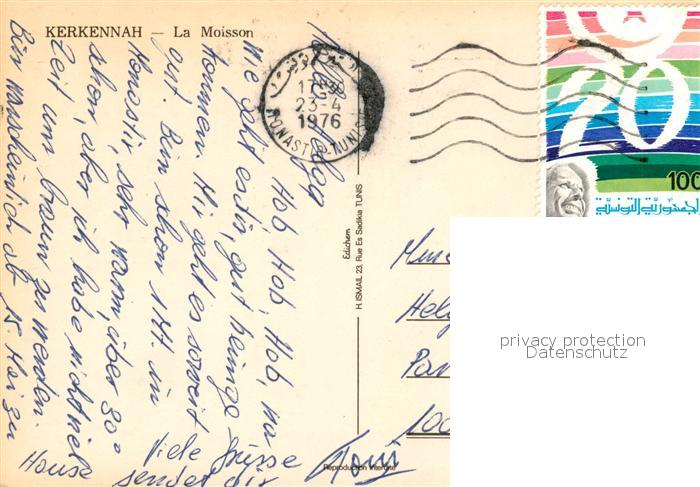 KERKENNAH — La Moisson
Hallo Helga
Hob, Hob, Hob, na
wie geht es dir, gut heimge
kommen. Mir geht es soweit
gut. Bin schon 1 M. in
Monastir, sehr warm, über 30°
schon, aber ich habe nicht viel
Zeit um braun zu werden.
Bin warscheinlich ab 15. Mai zu
Hause
Viele Grüsse
sendet dir
Toni
17-30
23-4
1976
MONASTIR-TUNISIE
Edichem
H. ISMAIL 23, Rue Es Sadikia TUNIS
Reproduction Interdite
20
100
الجمهورية التونسية
Hel
100
privacy protection
Datenschutz